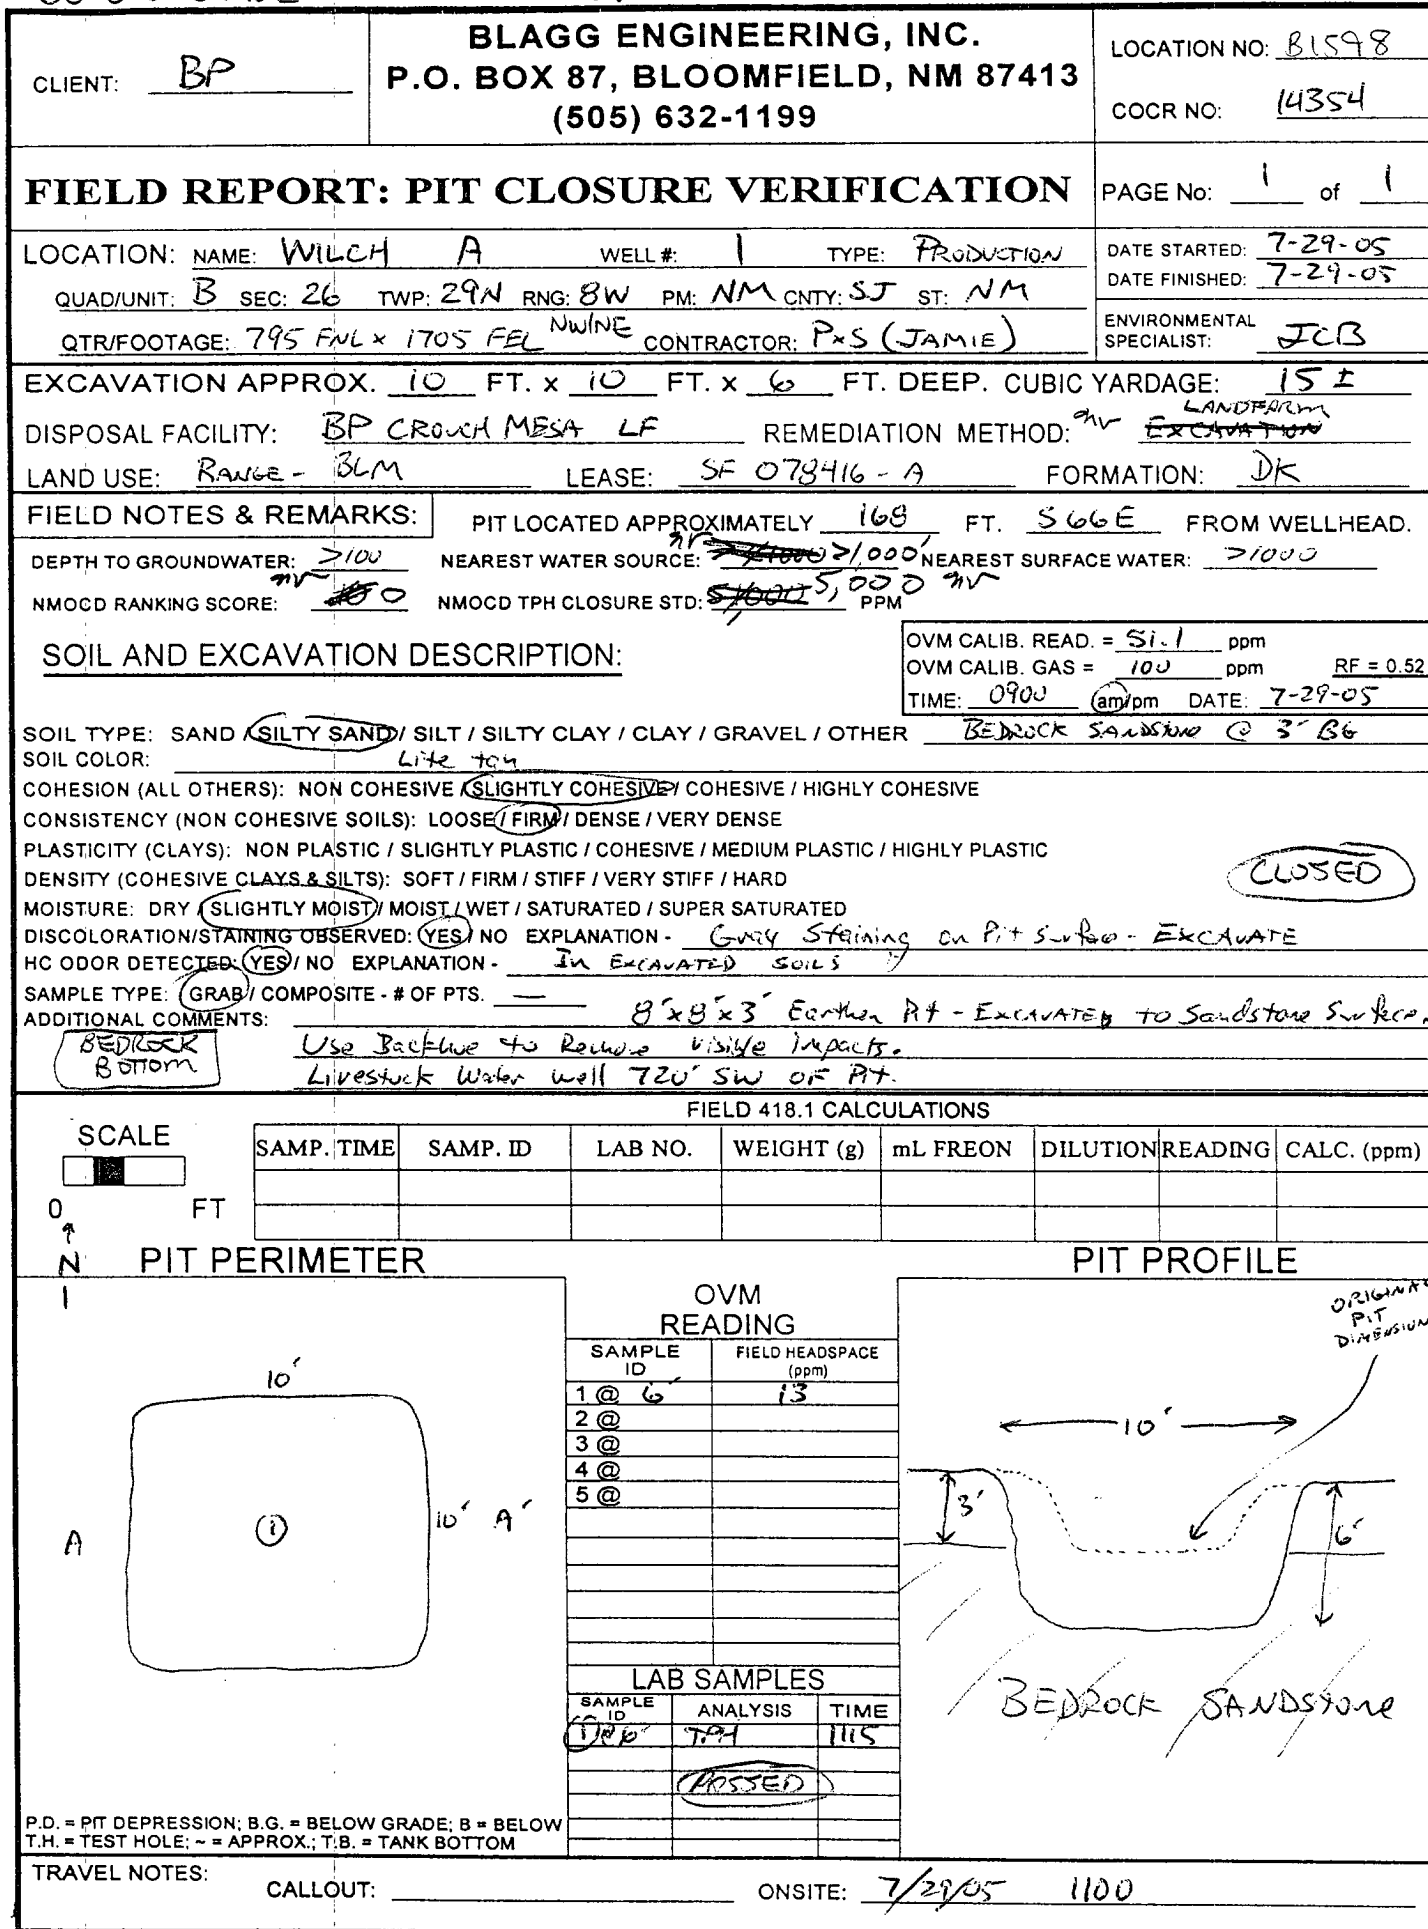 CLIENT: BP
BLAGG ENGINEERING, INC.
P.O. BOX 87, BLOOMFIELD, NM 87413
(505) 632-1199
LOCATION NO: B1598
COCR NO: 14354
FIELD REPORT: PIT CLOSURE VERIFICATION
PAGE No: 1 of 1
LOCATION: NAME: WILCH A WELL #: 1 TYPE: PRODUCTION
QUAD/UNIT: B SEC: 26 TWP: 29N RNG: 8W PM: NM CNTY: SJ ST: NM
QTR/FOOTAGE: 795 FNL x 1705 FEL NW/NE CONTRACTOR: P&S (JAMIE)
DATE STARTED: 7-29-05
DATE FINISHED: 7-29-05
ENVIRONMENTAL
SPECIALIST: JCB
EXCAVATION APPROX. 10 FT. x 10 FT. x 6 FT. DEEP. CUBIC YARDAGE: 15 ±
LANDFARM
DISPOSAL FACILITY: BP CROUCH MESA LF REMEDIATION METHOD: nv EXCAVATION
LAND USE: RANGE - BLM LEASE: SF 078416 - A FORMATION: DK
FIELD NOTES & REMARKS: PIT LOCATED APPROXIMATELY 168 FT. S66E FROM WELLHEAD.
DEPTH TO GROUNDWATER: >100 NEAREST WATER SOURCE: nv >1,000' NEAREST SURFACE WATER: >1000
NMOCD RANKING SCORE: nv 0 NMOCD TPH CLOSURE STD: 5,000 nv PPM
SOIL AND EXCAVATION DESCRIPTION:
OVM CALIB. READ. = 51.1 ppm
OVM CALIB. GAS = 100 ppm RF = 0.52
TIME: 0900 am/pm DATE: 7-29-05
SOIL TYPE: SAND / SILTY SAND / SILT / SILTY CLAY / CLAY / GRAVEL / OTHER BEDROCK SANDSTONE @ 3' BG
SOIL COLOR: Lite tan
COHESION (ALL OTHERS): NON COHESIVE / SLIGHTLY COHESIVE / COHESIVE / HIGHLY COHESIVE
CONSISTENCY (NON COHESIVE SOILS): LOOSE / FIRM / DENSE / VERY DENSE
PLASTICITY (CLAYS): NON PLASTIC / SLIGHTLY PLASTIC / COHESIVE / MEDIUM PLASTIC / HIGHLY PLASTIC
DENSITY (COHESIVE CLAYS & SILTS): SOFT / FIRM / STIFF / VERY STIFF / HARD
CLOSED
MOISTURE: DRY / SLIGHTLY MOIST / MOIST / WET / SATURATED / SUPER SATURATED
DISCOLORATION/STAINING OBSERVED: YES / NO EXPLANATION - Gray Staining on Pit Surface - EXCAVATE
HC ODOR DETECTED: YES / NO EXPLANATION - IN EXCAVATED SOILS
SAMPLE TYPE: GRAB / COMPOSITE - # OF PTS. —
ADDITIONAL COMMENTS: 8'x8'x3' Earthen Pit - EXCAVATED to Sandstone Surface.
BEDROCK
BOTTOM
Use Backhoe to Remove visible impacts.
Livestock Water well 720' SW OF Pit.
FIELD 418.1 CALCULATIONS
SCALE
0 FT
SAMP. TIME SAMP. ID LAB NO. WEIGHT (g) mL FREON DILUTION READING CALC. (ppm)
N
PIT PERIMETER
PIT PROFILE
10'
A
1
10' A'
OVM
READING
SAMPLE ID FIELD HEADSPACE (ppm)
1 @ 6' 13
2 @
3 @
4 @
5 @
LAB SAMPLES
SAMPLE ID ANALYSIS TIME
1@6' TPH 1115
PASSED
ORIGINAL
PIT
DIMENSION
10'
3'
6'
BEDROCK SANDSTONE
P.D. = PIT DEPRESSION; B.G. = BELOW GRADE; B = BELOW
T.H. = TEST HOLE; ~ = APPROX.; T.B. = TANK BOTTOM
TRAVEL NOTES:
CALLOUT: ONSITE: 7/29/05 1100